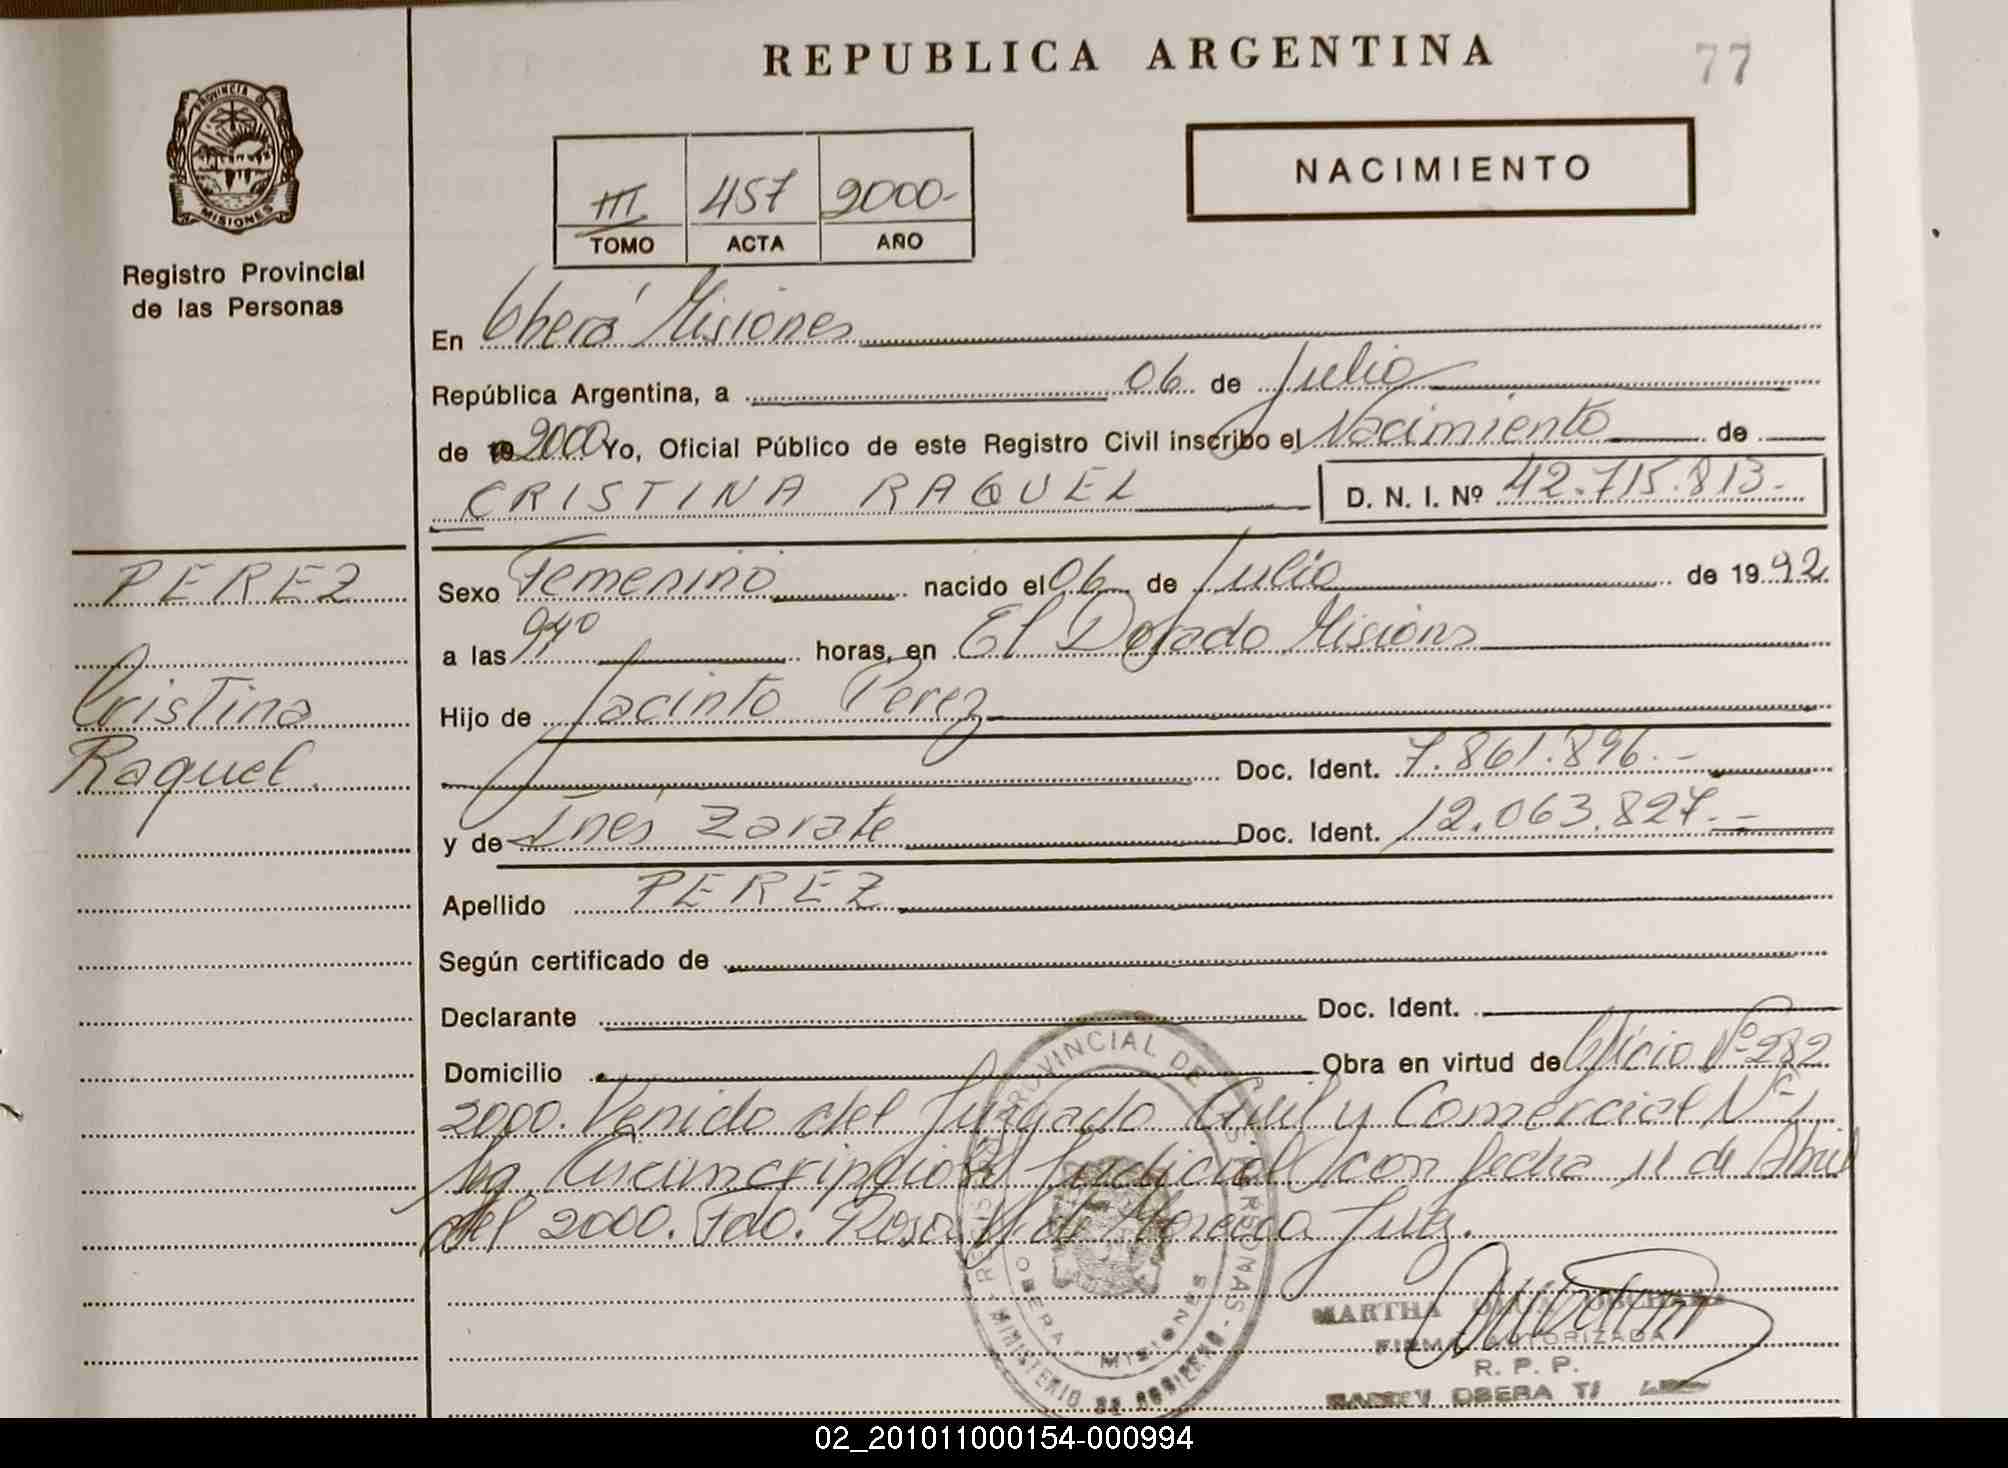 REPUBLICA ARGENTINA
77
PROVINCIA DE
MISIONES
Registro Provincial
de las Personas
III 457 2000-
TOMO ACTA AÑO
NACIMIENTO
En Oberá Misiones
República Argentina, a 06 de Julio
de 19 2000 Yo, Oficial Público de este Registro Civil inscribo el Nacimiento de
CRISTINA RAQUEL D. N. I. Nº 42.715.813.-
PEREZ
Cristina
Raquel.
Sexo Femenino nacido el 06 de Julio de 1992
a las horas, en El Dorado Misiones
Hijo de Jacinto Perez
Doc. Ident. 7.861.896.-
y de Inés Zarate Doc. Ident. 12.063.827.-
Apellido PEREZ
Según certificado de
Declarante Doc. Ident.
Domicilio Obra en virtud de Oficio Nº 282
2000. Venido del Juzgado Civil y Comercial Nº 1
Circunscripción Judicial con fecha 11 de Abril
del 2000. Fdo. Rosa de Juez.
REGISTRO PROVINCIAL DE LAS PERSONAS - MINISTERIO DE GOBIERNO
OBERA MISIONES
MARTHA
FIRMA AUTORIZADA
R. P. P.
OBERA
02_201011000154-000994